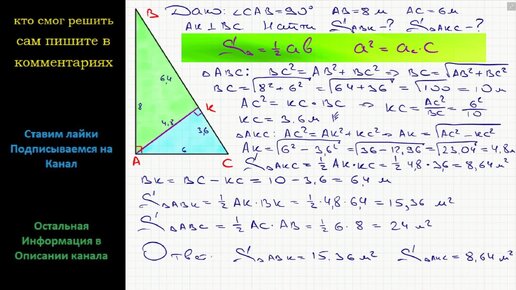 кто смог решить
сам пишите в
комментариях
Ставим лайки
Подписываемся на
Канал
Остальная
Информация в
Описании канала
B
6,4
8
K
4,8
3,6
A
6
C
Дано: ∠CAB=90° AB=8 м AC=6 м
AK⊥BC Найти S△ABK-? S△AKC-?
S△=½ab a²=a_c·c
△ABC: BC²=AB²+BC² ⇒ BC=√AB²+BC²
BC=√8²+6²=√64+36=√100=10 м
AC²=KC·BC ⇒ KC=AC²/BC=6²/10
KC=3,6 м
△AKC: AC²=AK²+KC² ⇒ AK=√AC²-KC²
AK=√6²-3,6²=√36-12,96=√23,04=4,8 м
S△AKC=½AK·KC=½·4,8·3,6=8,64 м²
BK=BC-KC=10-3,6=6,4 м
S△ABK=½AK·BK=½·4,8·6,4=15,36 м²
S△ABC=½AC·AB=½·6·8=24 м²
Ответ: S△ABK=15,36 м² S△AKC=8,64 м²